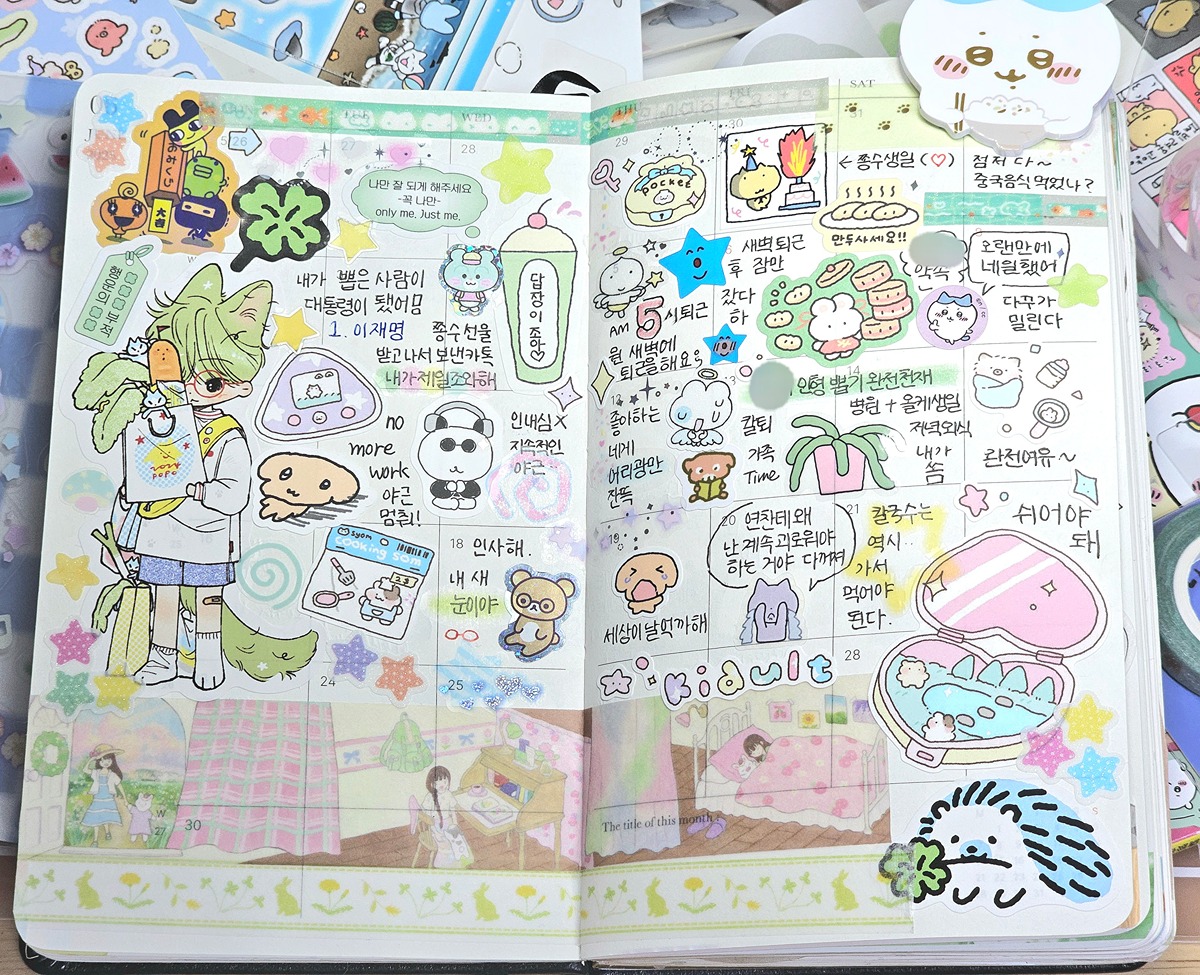 TUE
WED
THU
FRI
SAT
26
27
28
29
30
31
おみくじ
大吉
나만 잘 되게 해주세요
-꼭 나만-
only me. Just me.
행운의 부적
내가 뽑은 사람이
대통령이 됐어욤
1. 이재명
종수선율
받고나서 보낸카톡
내가제일조와해
답장이 좋아♡
pocket
← 종수생일 (♡)
만두사세요!!
점저 다~
중국음식 먹었나?
새벽퇴근
후 잠만
잤다
하
AM 5시퇴근
월 새벽에
퇴근을해요
오랜만에
네일했어
다꾸가
밀린다
no
more
work
야근
멈춰!
인내심 X
지속적인
야근
12
13
14
좋아하는
네게
어리광만
잔뜩
칼퇴
가족
Time
인형 뽑기 완전천재
병원 + 올케생일
저녁외식
내가
쏨
관전여유~
2024
POPO
syom
cooking som
18
인사해.
내 새
눈이야
19
세상이날억까해
20
연찬데왜
난 계속 괴로워야
하는 거야 다꺼져
21
칼국수는
역시..
가서
먹어야
된다.
쉬어야
돼
24
25
28
kidult
W
27
30
The title of this month :
S